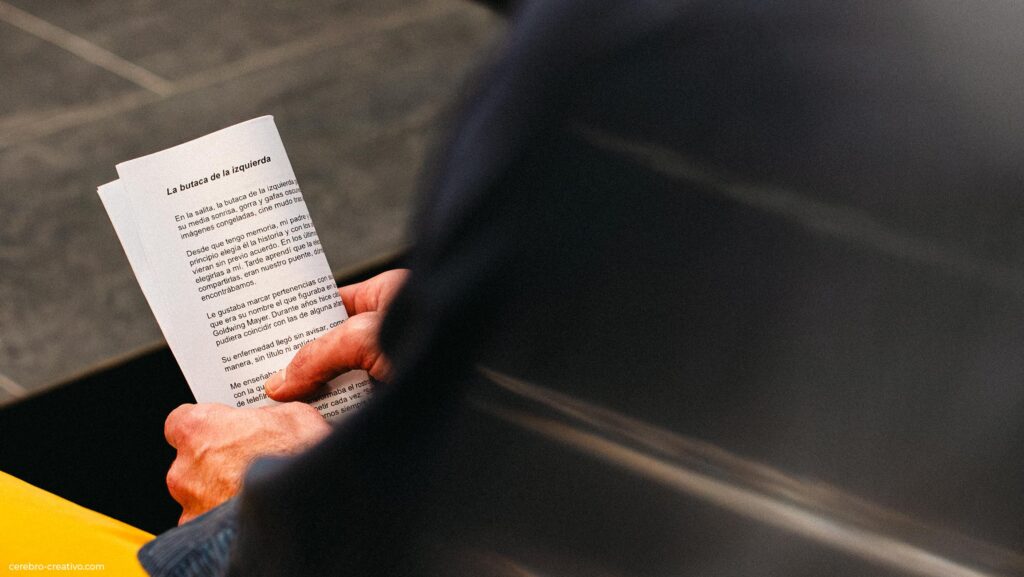 La butaca de la izquierda
En la salita, la butaca de la izquierda,
su media sonrisa, gorra y gafas
imágenes congeladas, cine mudo
Desde que tengo memoria, mi padre
principio elegía él la historia y con los
vieran sin previo acuerdo. En los
elegirlas a mí. Tarde aprendí que la
compartirlas, eran nuestro puente,
encontrábamos.
Le gustaba marcar pertenencias con
que era su nombre el que figuraba en
Goldwing Mayer. Durante años hice
pudiera coincidir con las de alguna
Su enfermedad llegó sin avisar, como
manera, sin título ni
Me
con la
de el
cada vez:
cerebro-creativo.com